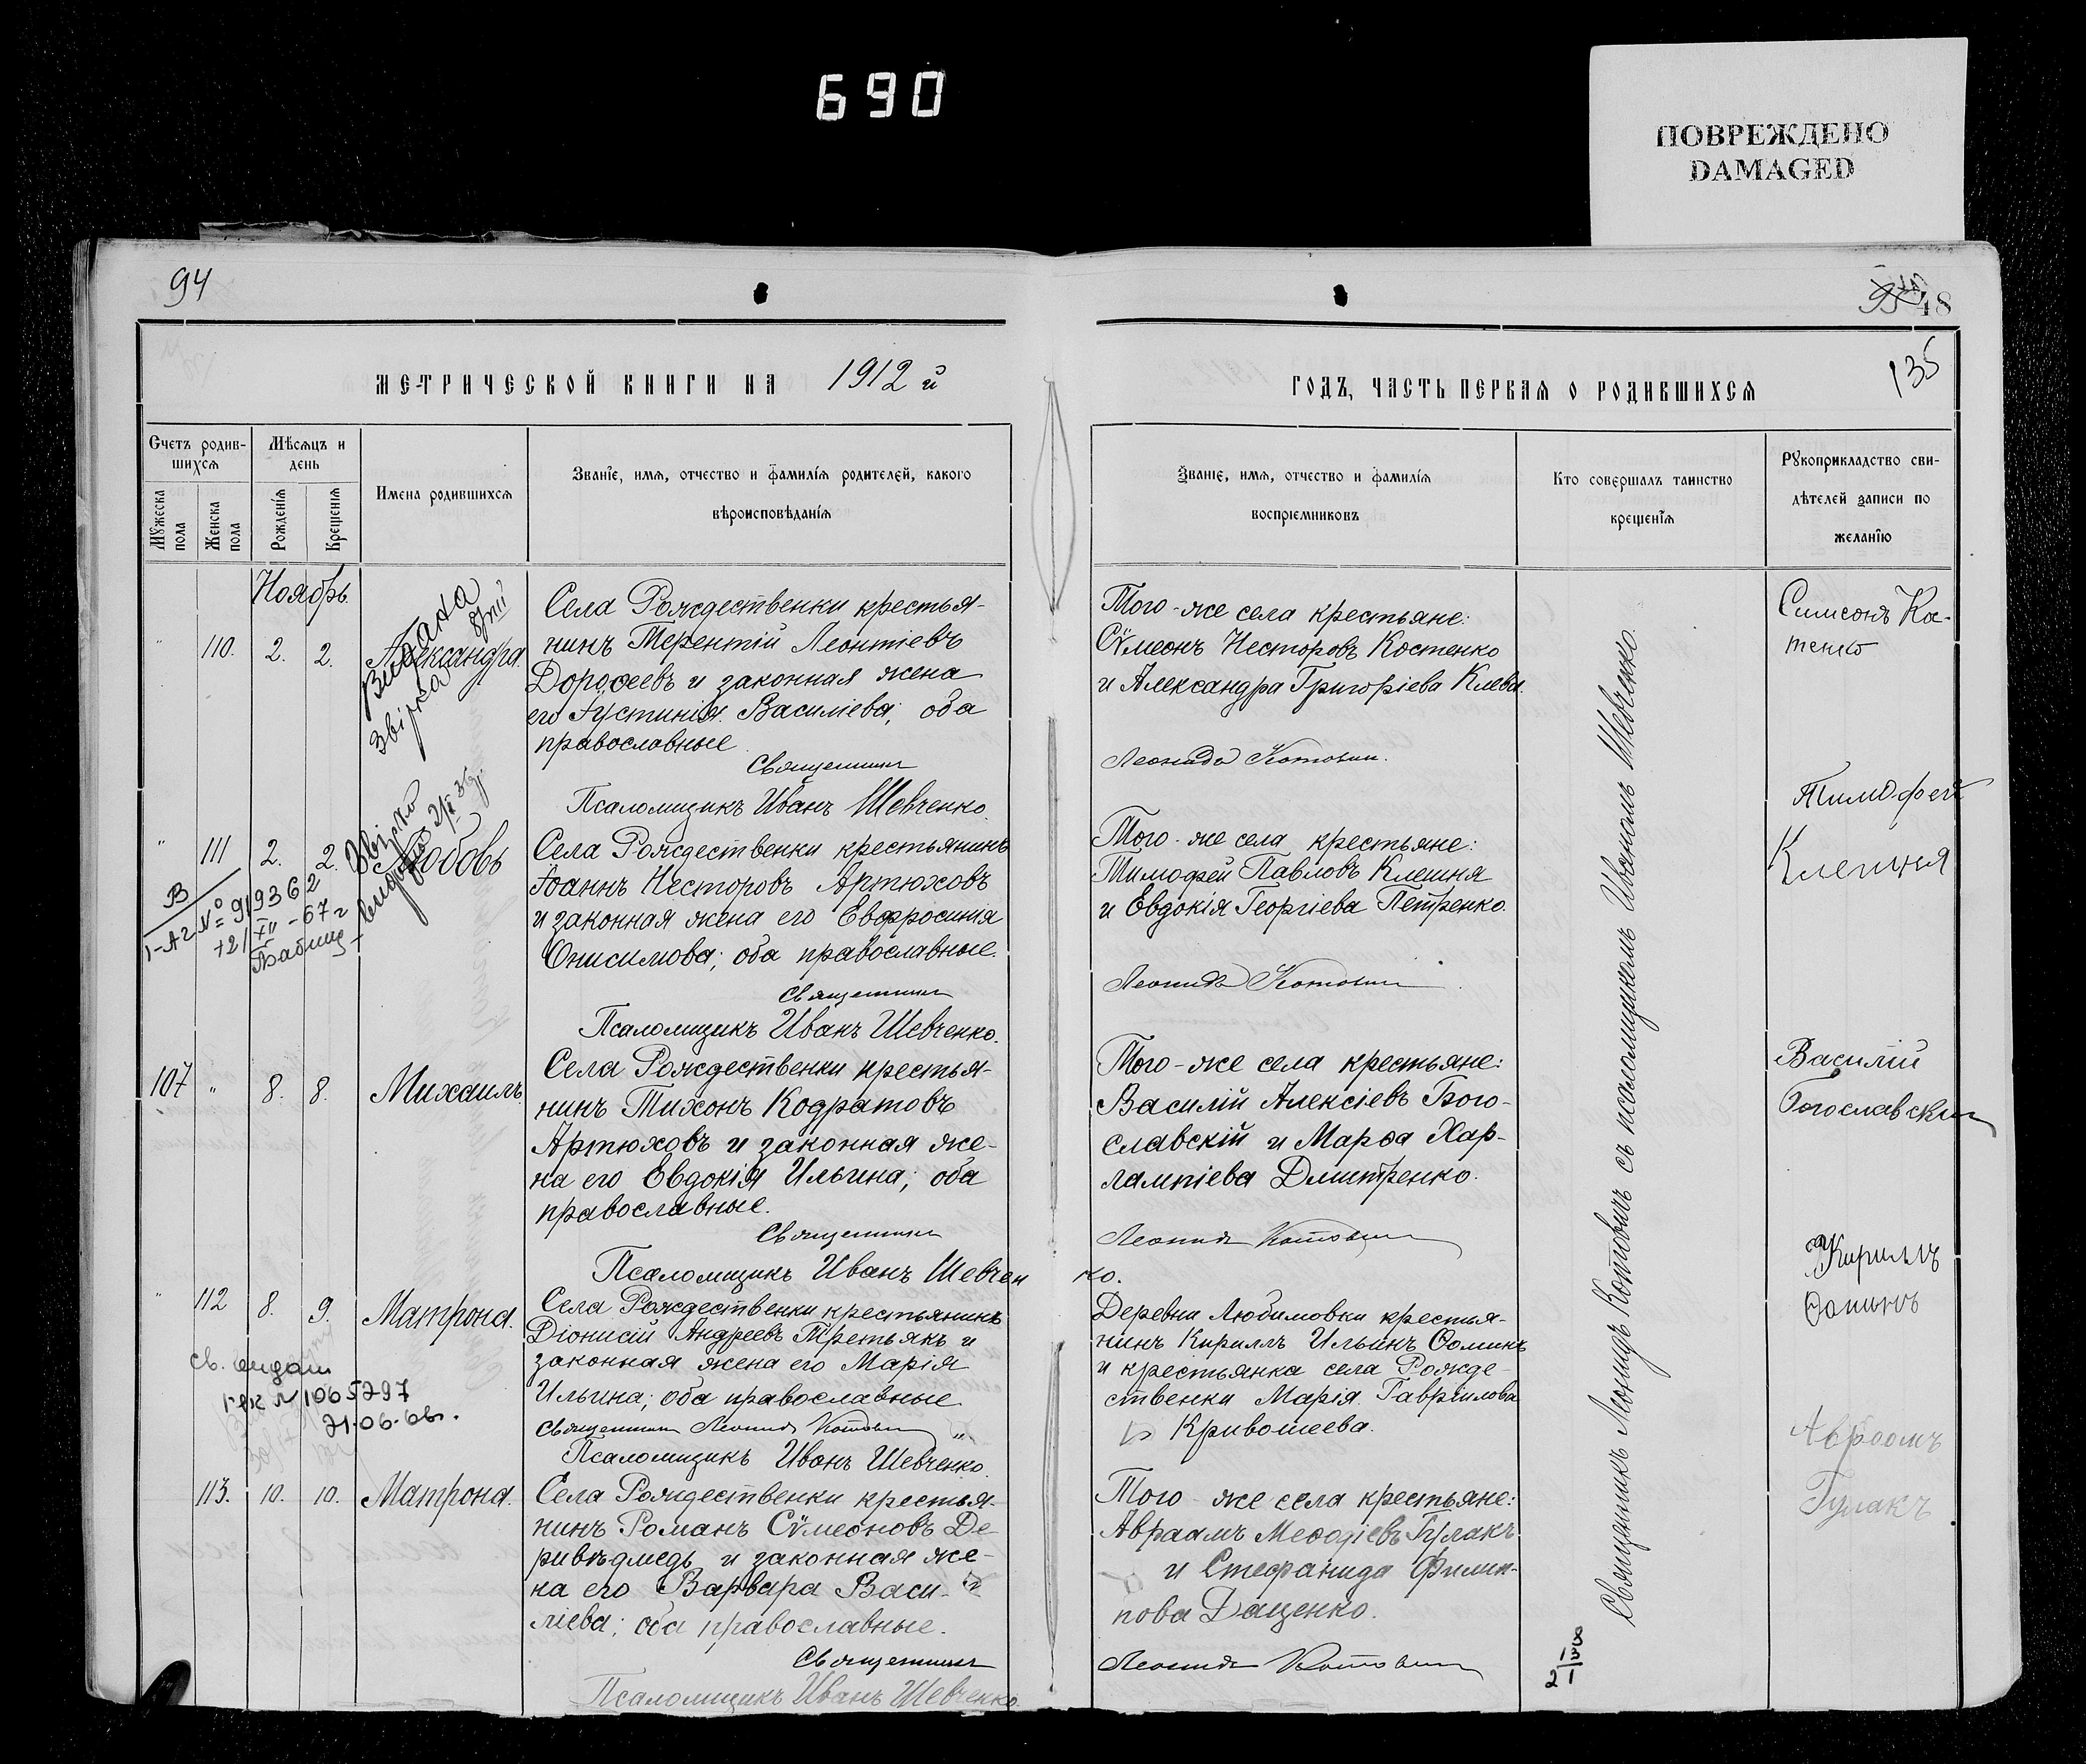 690
ПОВРЕЖДЕНО
DAMAGED
94
48
135
МЕТРИЧЕСКОЙ КНИГИ НА 1912 й
ГОДЪ, ЧАСТЬ ПЕРВАЯ О РОДИВШИХСЯ
Счетъ родив-
шихся
Мѹжеска
пола
Женска
пола
Мѣсяцъ и
день
Рожденія
Крещенія
Имена родившихся
Званіе, имя, отчество и фамилія родителей, какого
вѣроисповѣданія
Званіе, имя, отчество и фамилія
воспріемниковъ
Кто совершалъ таинство
крещенія
Рѹкоприкладство сви-
дѣтелей записи по
желанію
Ноябрь.
" 110. 2. 2. Александра.
Села Рождественки крестья-
нинъ Терентій Леонтіевъ
Дороѳеевъ и законная жена
его Іустинія Василіева; оба
православные
Священникъ
Псаломщикъ Иванъ Шевченко.
Того-же села крестьяне:
Сѵмеонъ Несторовъ Костенко
и Александра Григоріева Клева.
Леонидъ Котовичъ.
Симеонъ Кос-
тенко
" 111 2. 2. Любовь
В
1-А2 № 919362
+21/XII-67г
Села Рождественки крестьянинъ
Іоаннъ Несторовъ Артюховъ
и законная жена его Евфросинія
Онисимова; оба православные.
Священникъ
Псаломщикъ Иванъ Шевченко.
Того-же села крестьяне:
Тимофей Павловъ Клешня
и Евдокія Георгіева Петренко.
Леонидъ Котовичъ
Тимофей
Клешня
107 " 8. 8. Михаилъ.
Села Рождественки крестья-
нинъ Тихонъ Кодратовъ
Артюховъ и законная же-
на его Евдокія Ильина; оба
православные.
Священникъ
Псаломщикъ Иванъ Шевченко.
Того-же села крестьяне:
Василій Алексіевъ Бого-
славскій и Марѳа Хар-
лампіева Дмитренко.
Леонидъ Котовичъ
Василій
Богославский
" 112 8. 9. Матрона.
св. видат
№ 1065797
21.06.
Села Рождественки крестьянинъ
Діонисій Андреевъ Третьякъ и
законная жена его Марія
Ильина; оба православные
Священникъ Леонидъ Котовичъ
Псаломщикъ Иванъ Шевченко.
Деревни Любимовки крестья-
нинъ Кириллъ Ильинъ Ѳоминъ
и крестьянка села Рожде-
ственки Марія Гавріилова
Кривошеева.
Кириллъ
Ѳоминъ
113. 10. 10. Матрона.
Села Рождественки крестья-
нинъ Романъ Сѵмеоновъ Де-
ривѣдмедь и законная же-
на его Варвара Васи-
ліева; оба православные.
Священникъ
Псаломщикъ Иванъ Шевченко.
Того же села крестьяне:
Авраамъ Меѳодіевъ Гулакъ
и Стефанида Филип-
пова Даценко.
Леонидъ Котовичъ
Авраамъ
Гулакъ
Священникъ Леонидъ Котовичъ съ псаломщикомъ Иваномъ Шевченко.